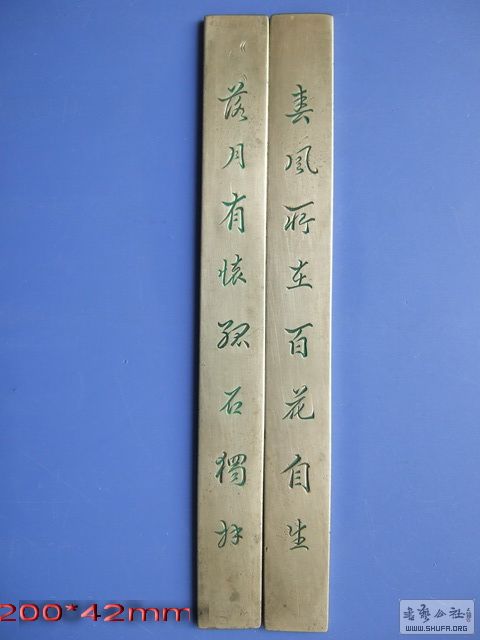 春風所在百花自生
落月有懷石獨
200*42mm
書藝公社
WWW.SHUFA.ORG